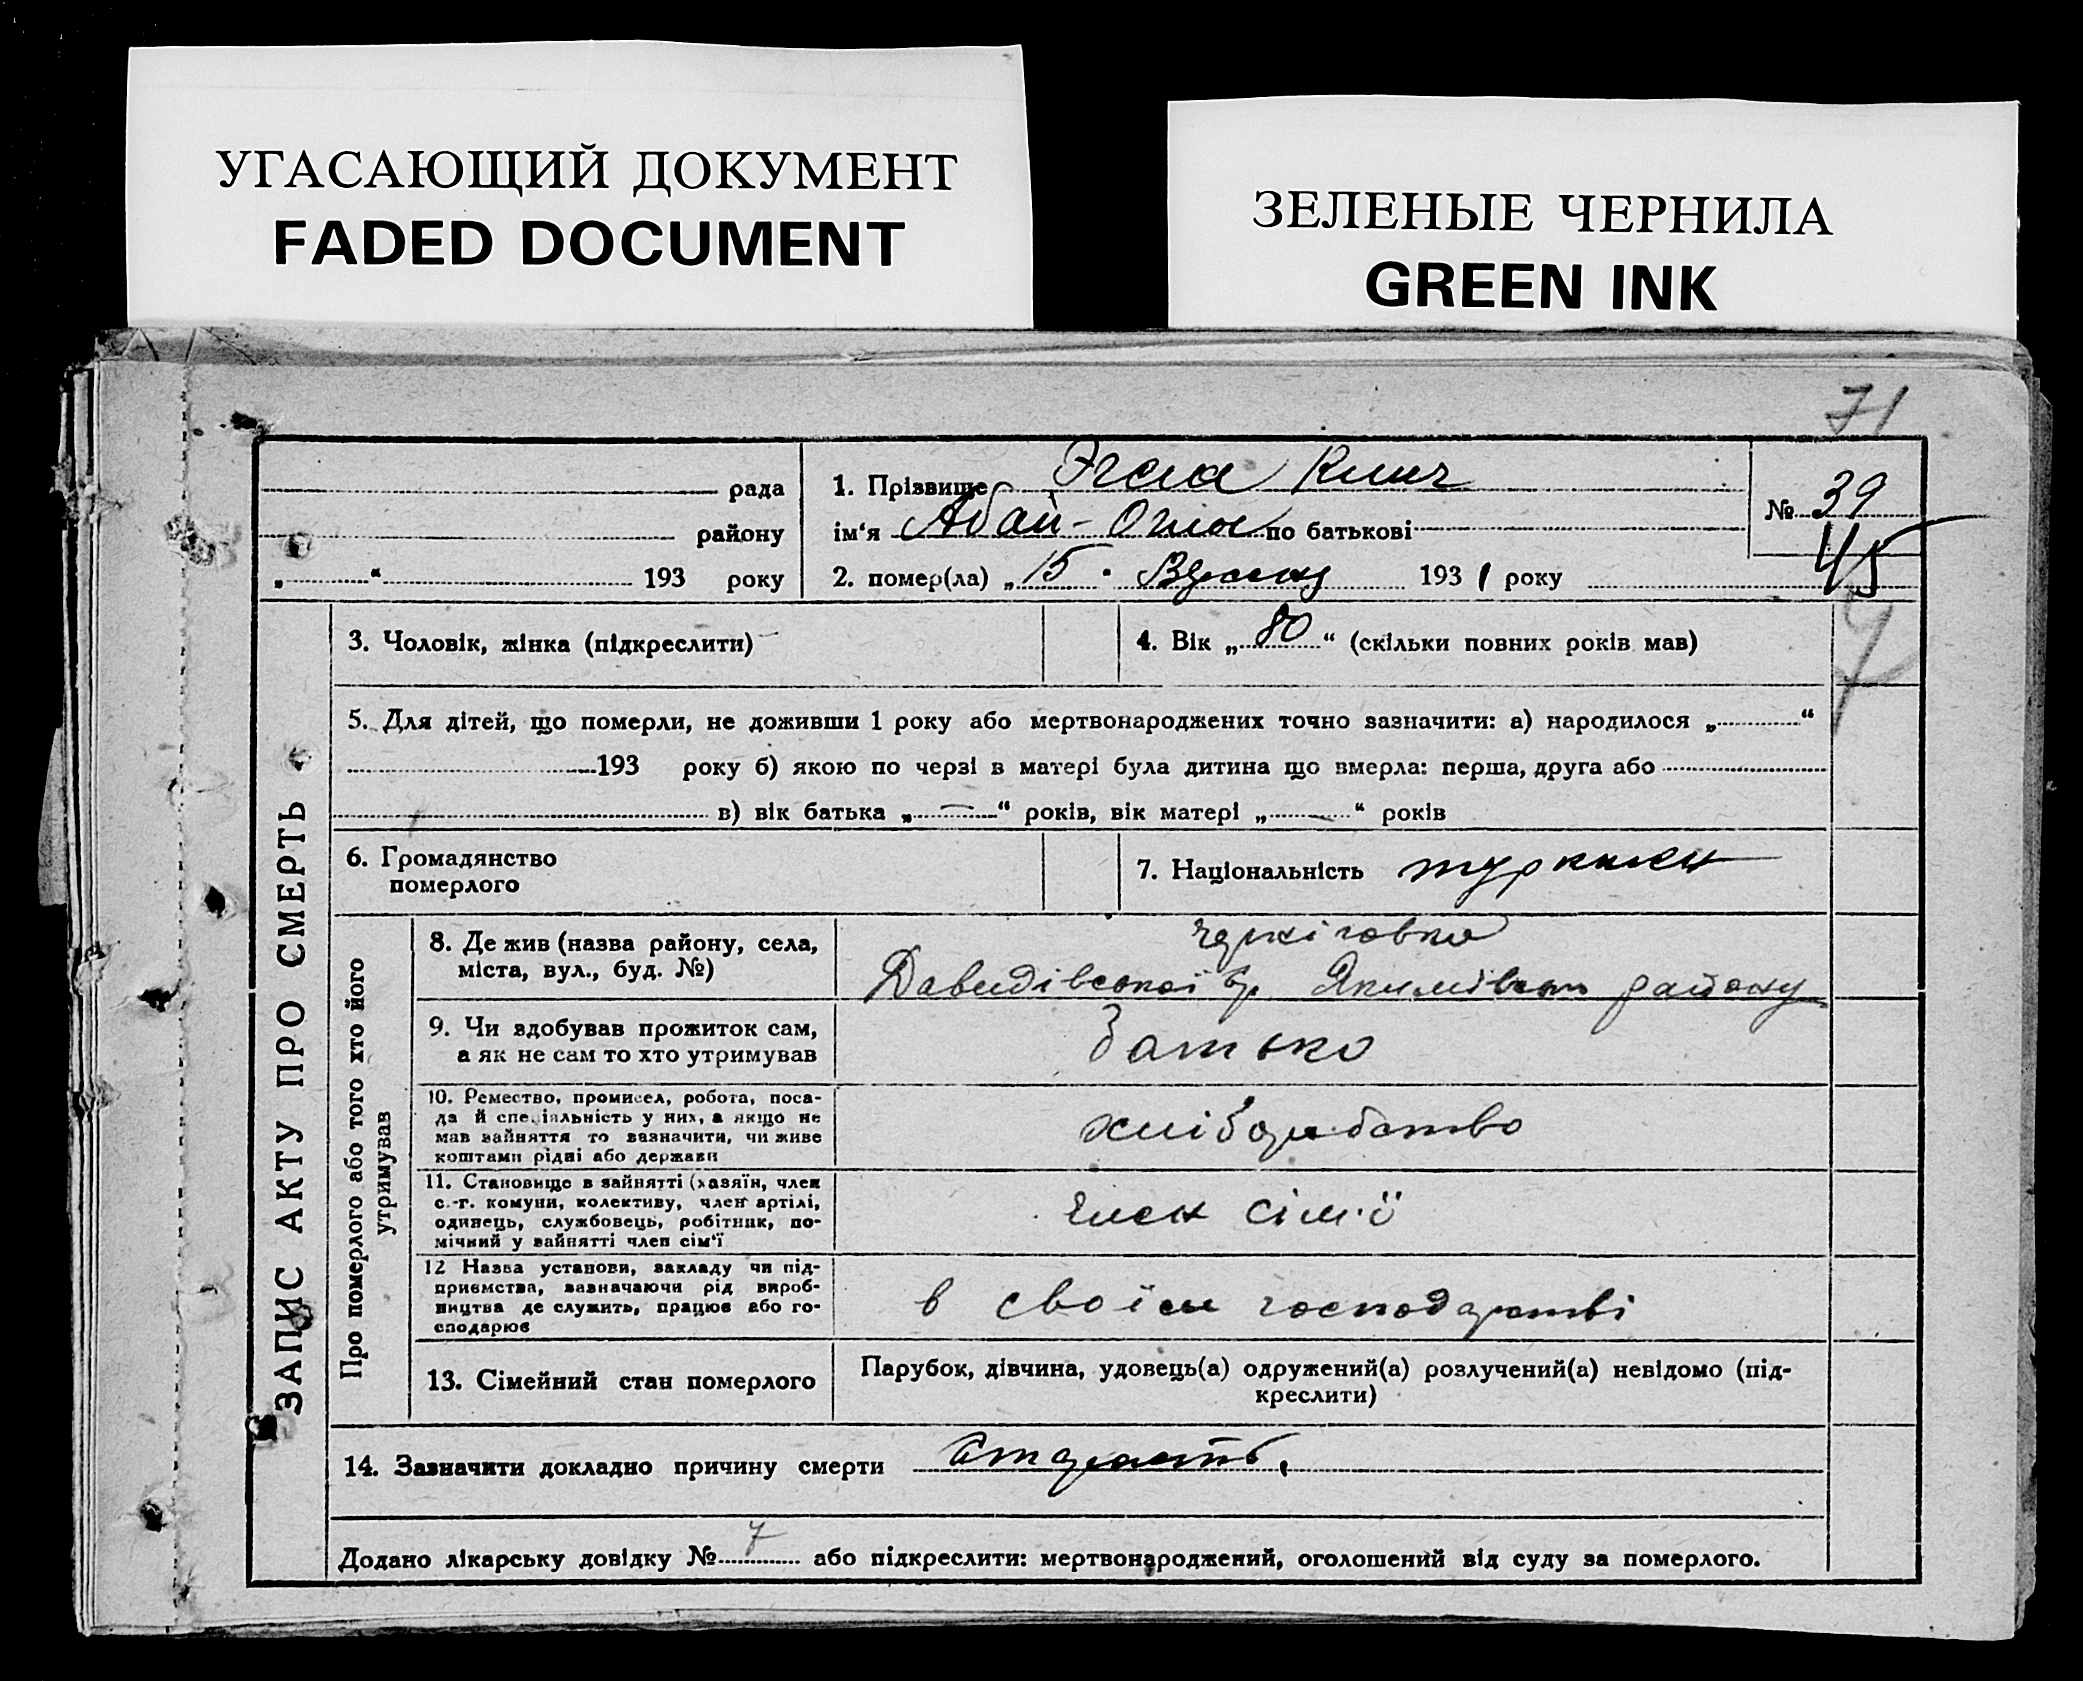 УГАСАЮЩИЙ ДОКУМЕНТ
FADED DOCUMENT
ЗЕЛЕНЫЕ ЧЕРНИЛА
GREEN INK
71
рада
району
„ “ 193 року
1. Прізвище
ім‘я Абай-Огли по батькові
2. помер(ла) „15. 1931 року
№ 39
45
ЗАПИС АКТУ ПРО СМЕРТЬ
3. Чоловік, жінка (підкреслити)
4. Вік „80“ (скільки повних років мав)
5. Для дітей, що померли, не доживши 1 року або мертвонароджених точно зазначити: а) народилося „ “
193 року б) якою по черзі в матері була дитина що вмерла: перша, друга або
в) вік батька „—“ років, вік матері „—“ років
6. Громадянство
померлого
7. Національність туркмен
Про померлого або того хто його
утримував
8. Де жив (назва району, села,
міста, вул., буд. №)
Черніговка
Давидівської Якимівськ району
9. Чи здобував прожиток сам,
а як не сам то хто утримував
Батько
10. Ремество, промисел, робота, поса-
да й спеціяльність у них, а якщо не
мав зайняття то зазначити, чи живе
коштами рідні або держави
хліборобство
11. Становище в зайнятті (хазяїн, член
с.-г. комуни, колективу, член артілі,
одинець, службовець, робітник, по-
мічний у зайнятті член сім‘ї
член сім‘ї
12 Назва установи, закладу чи під-
приємства, зазначаючи рід вироб-
ництва де служить, працює або го-
сподарює
в своїм господарстві
13. Сімейний стан померлого
Парубок, дівчина, удовець(а) одружений(а) розлучений(а) невідомо (під-
креслити)
14. Зазначити докладно причину смерти старость.
Додано лікарську довідку № 7 або підкреслити: мертвонароджений, оголошений від суду за померлого.